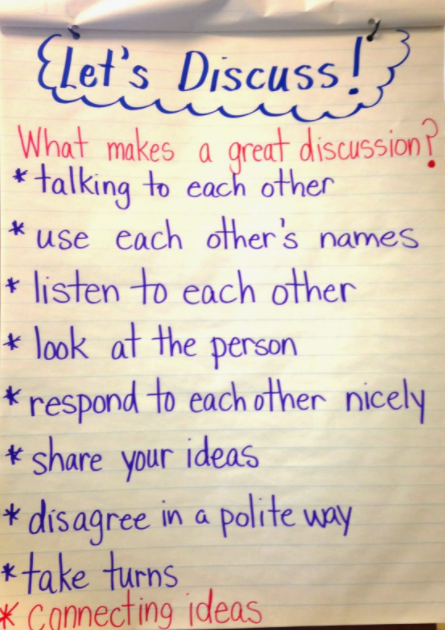 Let's Discuss!
What makes a great discussion?
* talking to each other
* use each other's names
* listen to each other
* look at the person
* respond to each other nicely
* share your ideas
* disagree in a polite way
* take turns
* connecting ideas